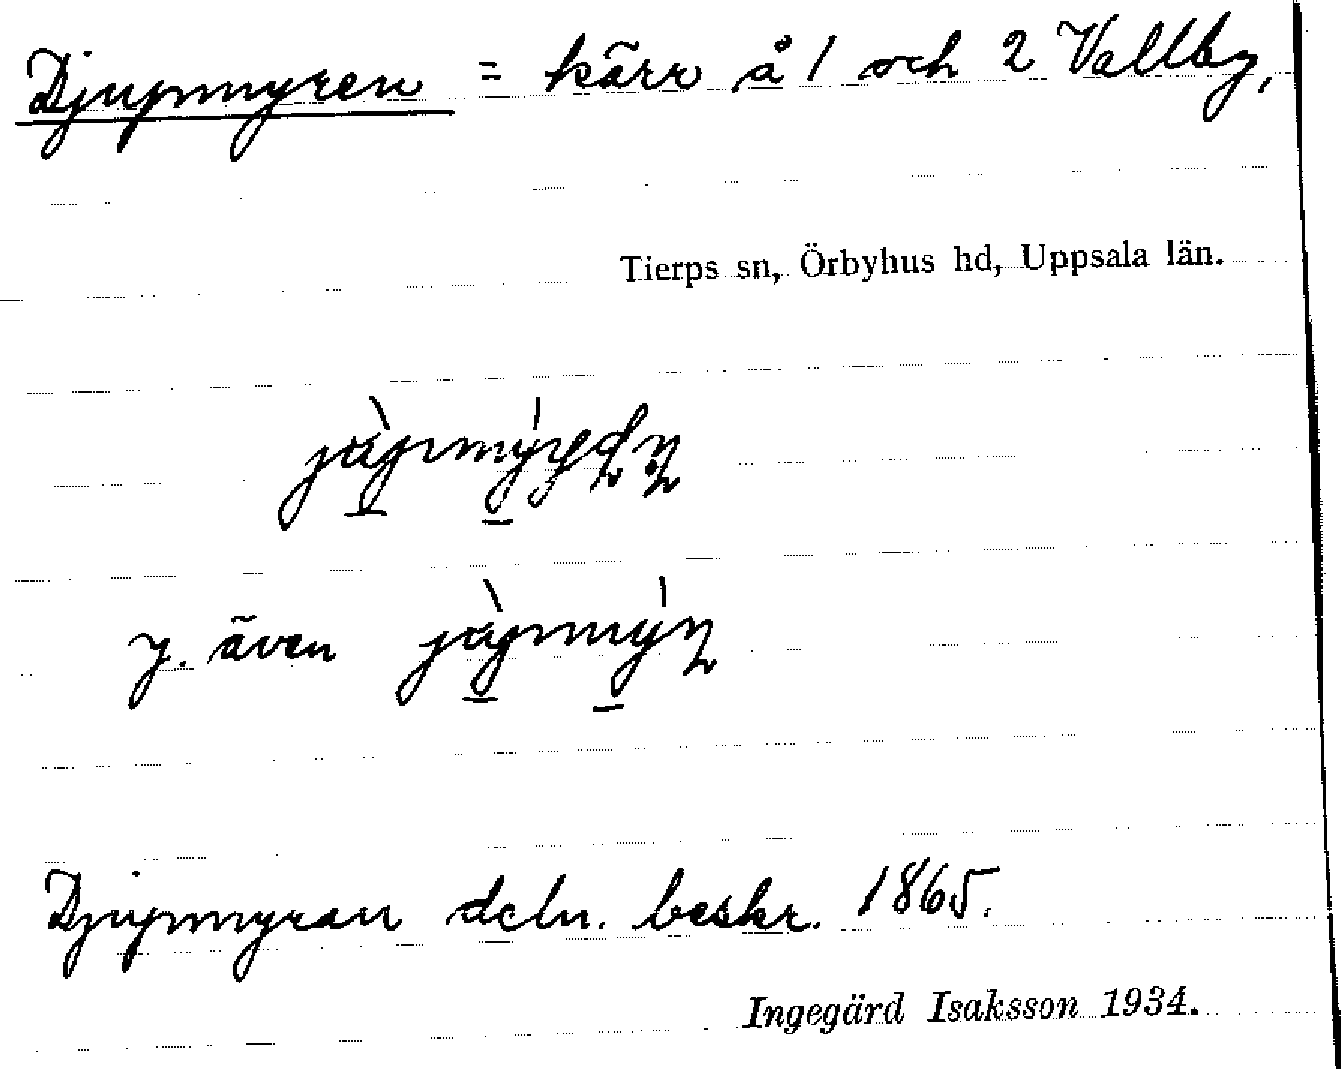 Djupmyren = kärr å 1 och 2 Vallby,
Tierps sn, Örbyhus hd, Uppsala län.
y. även
Djupmyran deln. beskr. 1865.
Ingegärd Isaksson 1934.